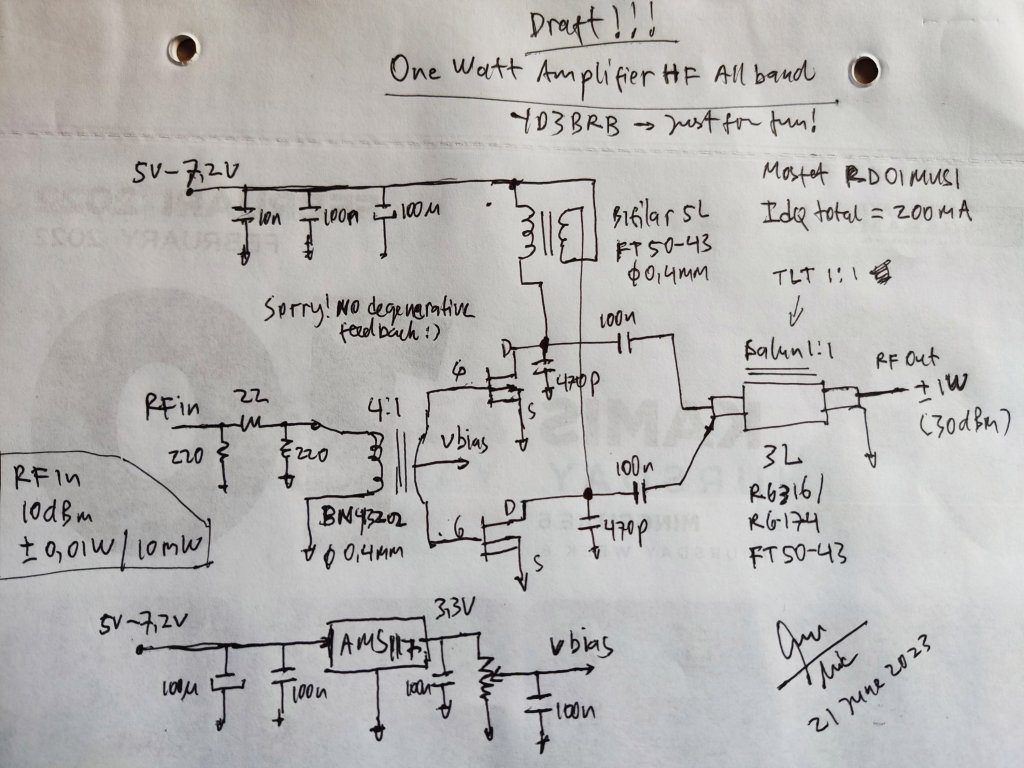 Draft!!!
One Watt Amplifier HF All band
YD3BRB → just for fun!
5V-7,2V
10n
100n
100µ
Bifilar 5L
FT50-43
φ0,4mm
Mosfet RD01MUS1
Idq total = 200mA
TLT 1:1
Sorry! NO degenerative
feedback:)
100n
D
470p
S
Balun 1:1
RF Out
±1W
(30dBm)
RFin
22
220
220
4:1
vbias
RFin
10dBm
±0,01W/10mW
BN43202
φ0,4mm
G
D
S
100n
470p
3L
RG316/
RG174
FT50-43
5V~7,2V
100µ
100n
AMS1117
3,3V
100n
vbias
100n
21 June 2023